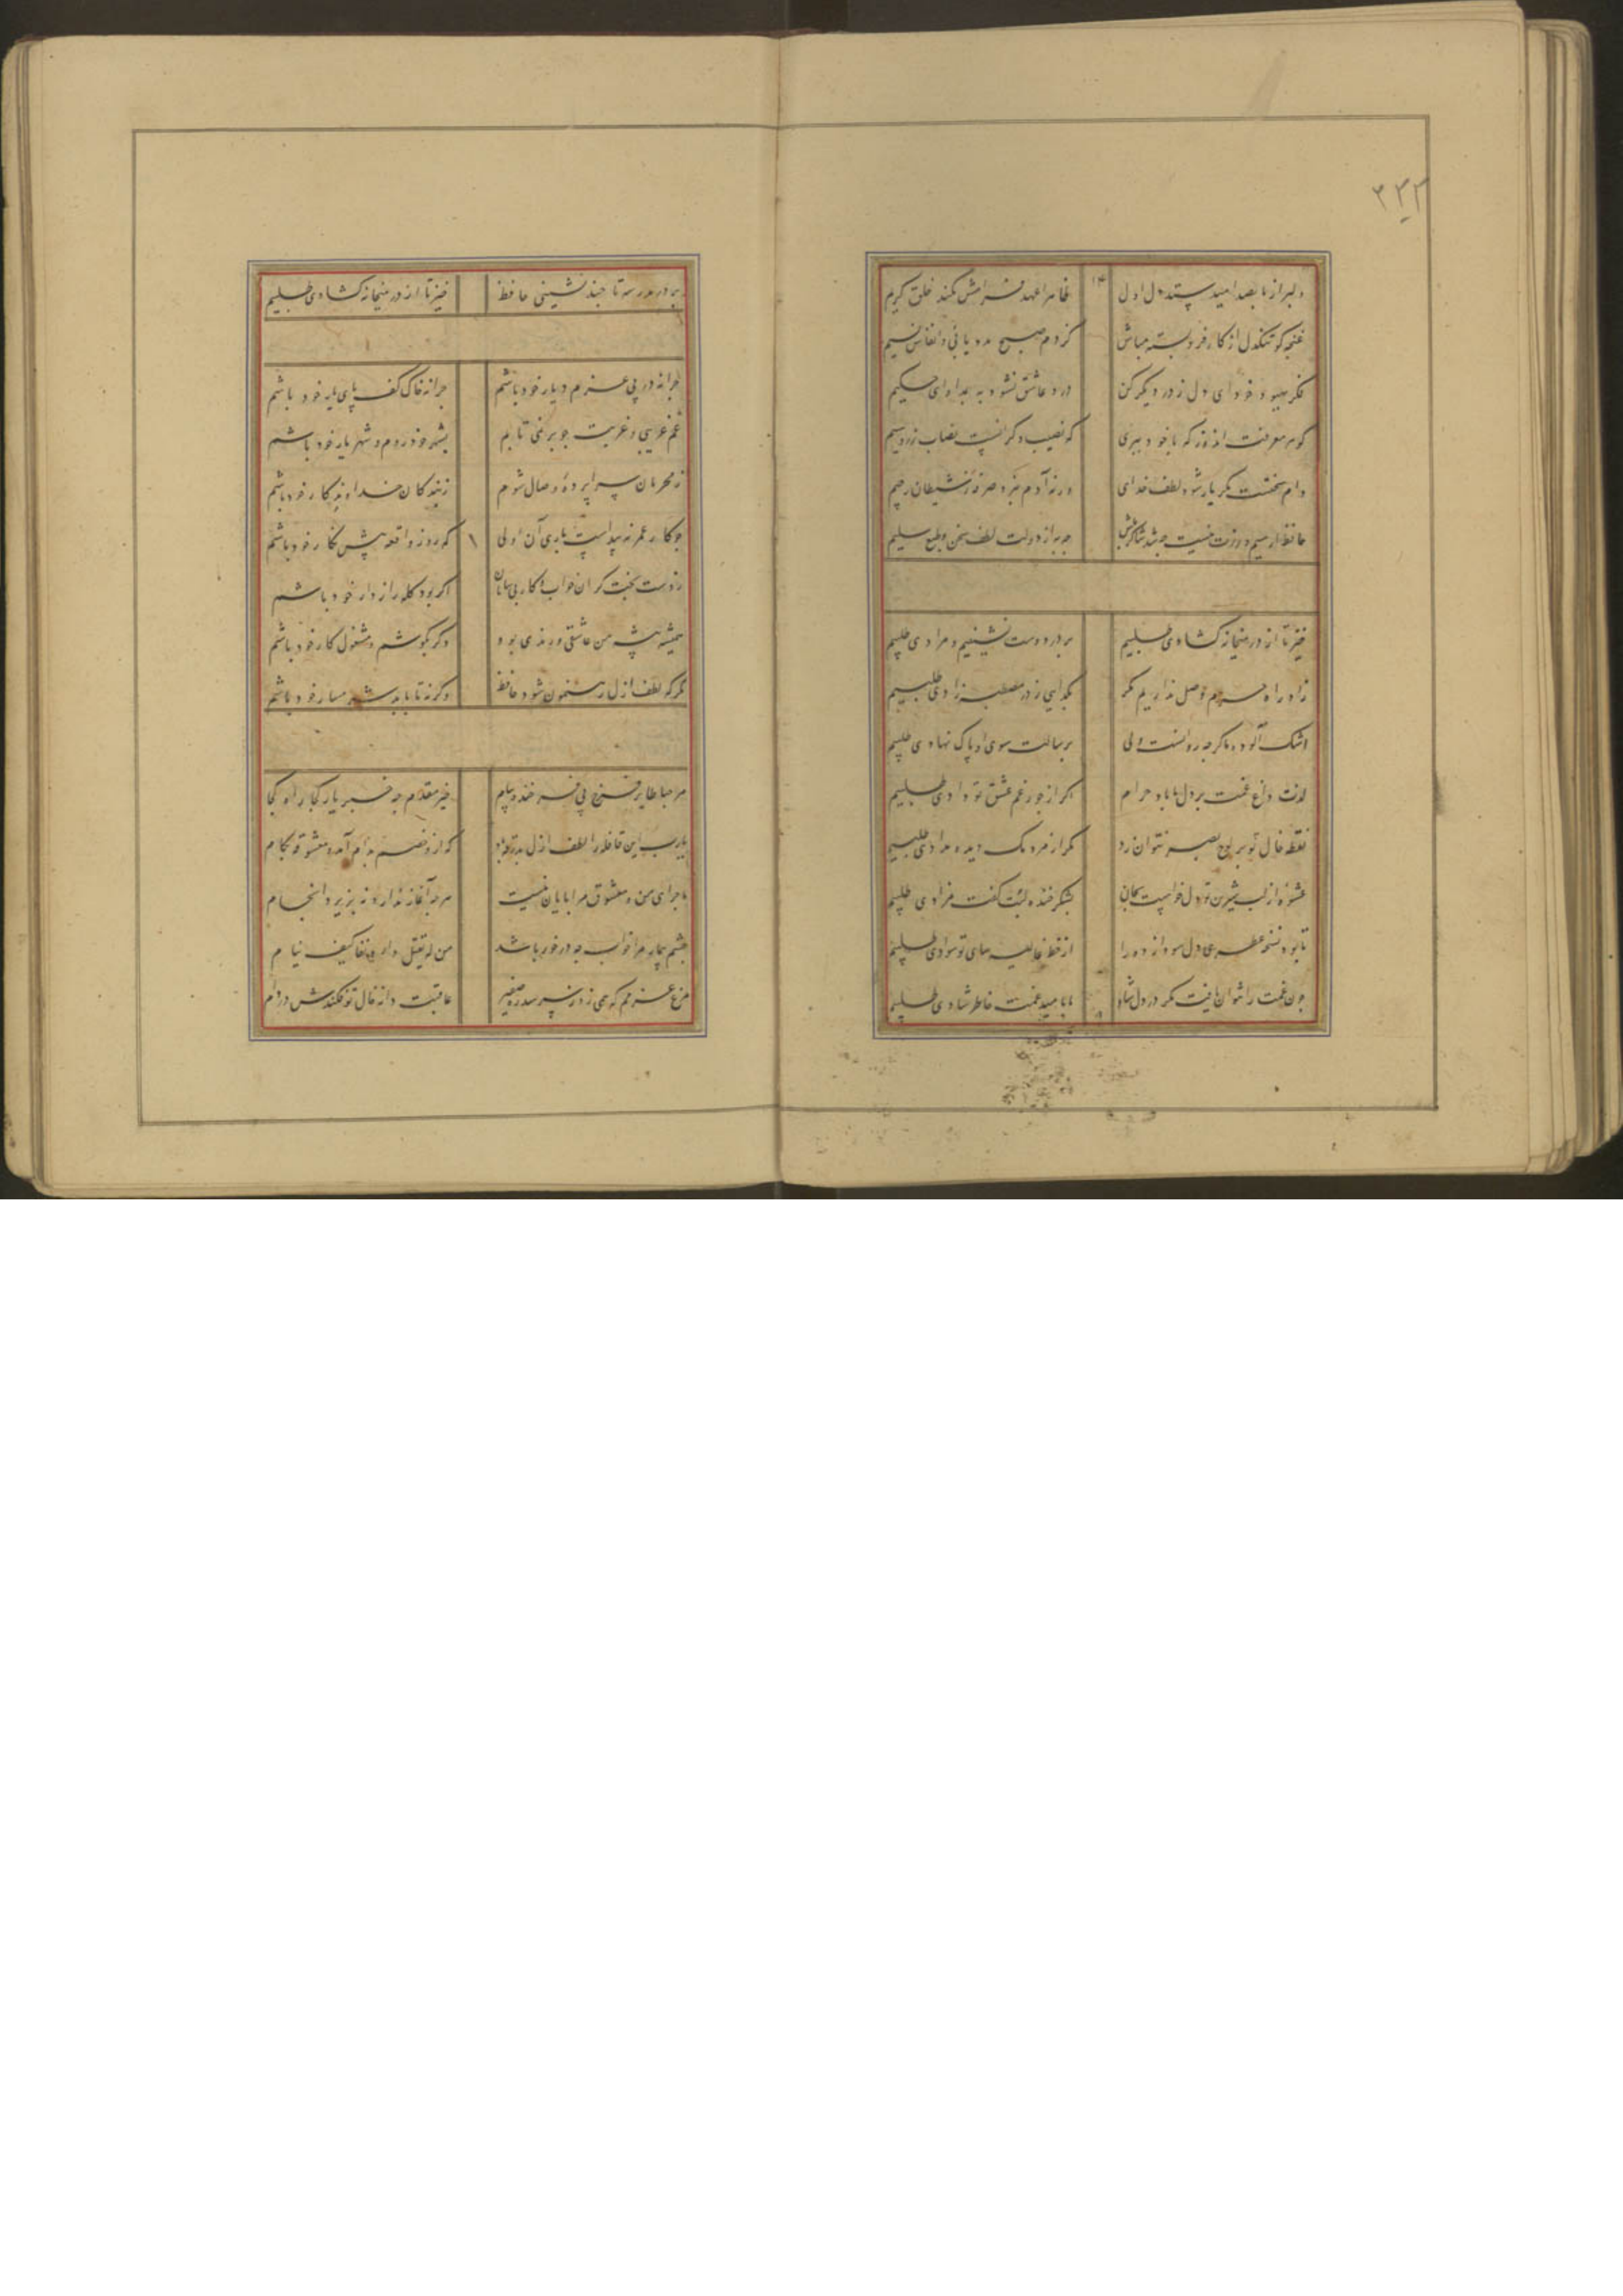 ۲۳۲
دلبر از ما بصد امید ستد اول دل
ظاهرا عهد فرامش نکند خلق کریم
غنچه کو تنکدل از کار فروبسته مباش
کز دم صبح مدد یابی و انفاس نسیم
فکر بهبود خود ای دل ز در دیکر کن
درد عاشق نشود به بمداوای حکیم
کوهر معرفت اندوز که با خود ببری
که نصیب دکرانست نصاب زر و سیم
دام سختست مکر یار شود لطف خدای
ورنه آدم نبرد صرفه ز شیطان رجیم
حافظ ار سیم و زرت نیست چه شد شاکر باش
چه به از دولت لطف سخن و طبع سلیم
خیز تا از در میخانه کشادی طلبیم
بر در دوست نشینیم و مرادی طلبیم
زاد راه حرم وصل نداریم مکر
بکدایی ز در مصطبه زادی طلبیم
اشک آلوده ما کرچه روانست ولی
برسالت سوی او پاک نهادی طلبیم
لذت داغ غمت بر دل ما باد حرام
اکر از جور غم عشق تو دادی طلبیم
نقطه خال تو بر لوح بصر نتوان زد
مکر از مردمک دیده مدادی طلبیم
عشوه از لب شیرین تو دل خواست بجان
بشکر خنده لبت کفت مزادی طلبیم
تا بود نسخه عطری دل سودازده را
از خط غالیه سای تو سوادی طلبیم
چون غمت را نتوان یافت مکر در دل شاد
ما بامید غمت خاطر شادی طلبیم
بر در مدرسه تا چند نشینی حافظ
خیز تا از در میخانه کشادی طلبیم
چرا نه در پی عزم دیار خود باشم
چرا نه خاک کف پای یار خود باشم
غم غریبی و غربت چو بر نمی تابم
بشهر خود روم و شهریار خود باشم
ز محرمان سراپرده وصال شوم
ز بندکان خداوندکار خود باشم
چو کار عمر نه پیداست باری آن اولی
که روز واقعه پیش نکار خود باشم
ز دست بخت کران خواب و کار بی سامان
اکر بود کله راز دار خود باشم
همیشه پیشه من عاشقی و رندی بود
دکر بکوشم و مشغول کار خود باشم
مکر که لطف ازل رهنمون شود حافظ
وکرنه تا بابد شرمسار خود باشم
مرحبا طایر فرخ پی فرخنده پیام
خیر مقدم چه خبر یار کجا راه کجا
یارب این قافله را لطف ازل بدرقه باد
که ازو خصم بدام آمد و معشوقه بکام
ماجرای من و معشوق مرا پایان نیست
هرچه آغاز ندارد نه پذیرد انجام
چشم بیمار مرا خواب چه درخور باشد
من له یقتل داء دنفا کیف ینام
مرغ عزمم که همی زد ز سر سدره صفیر
عاقبت دانه خال تو فکندش در دام